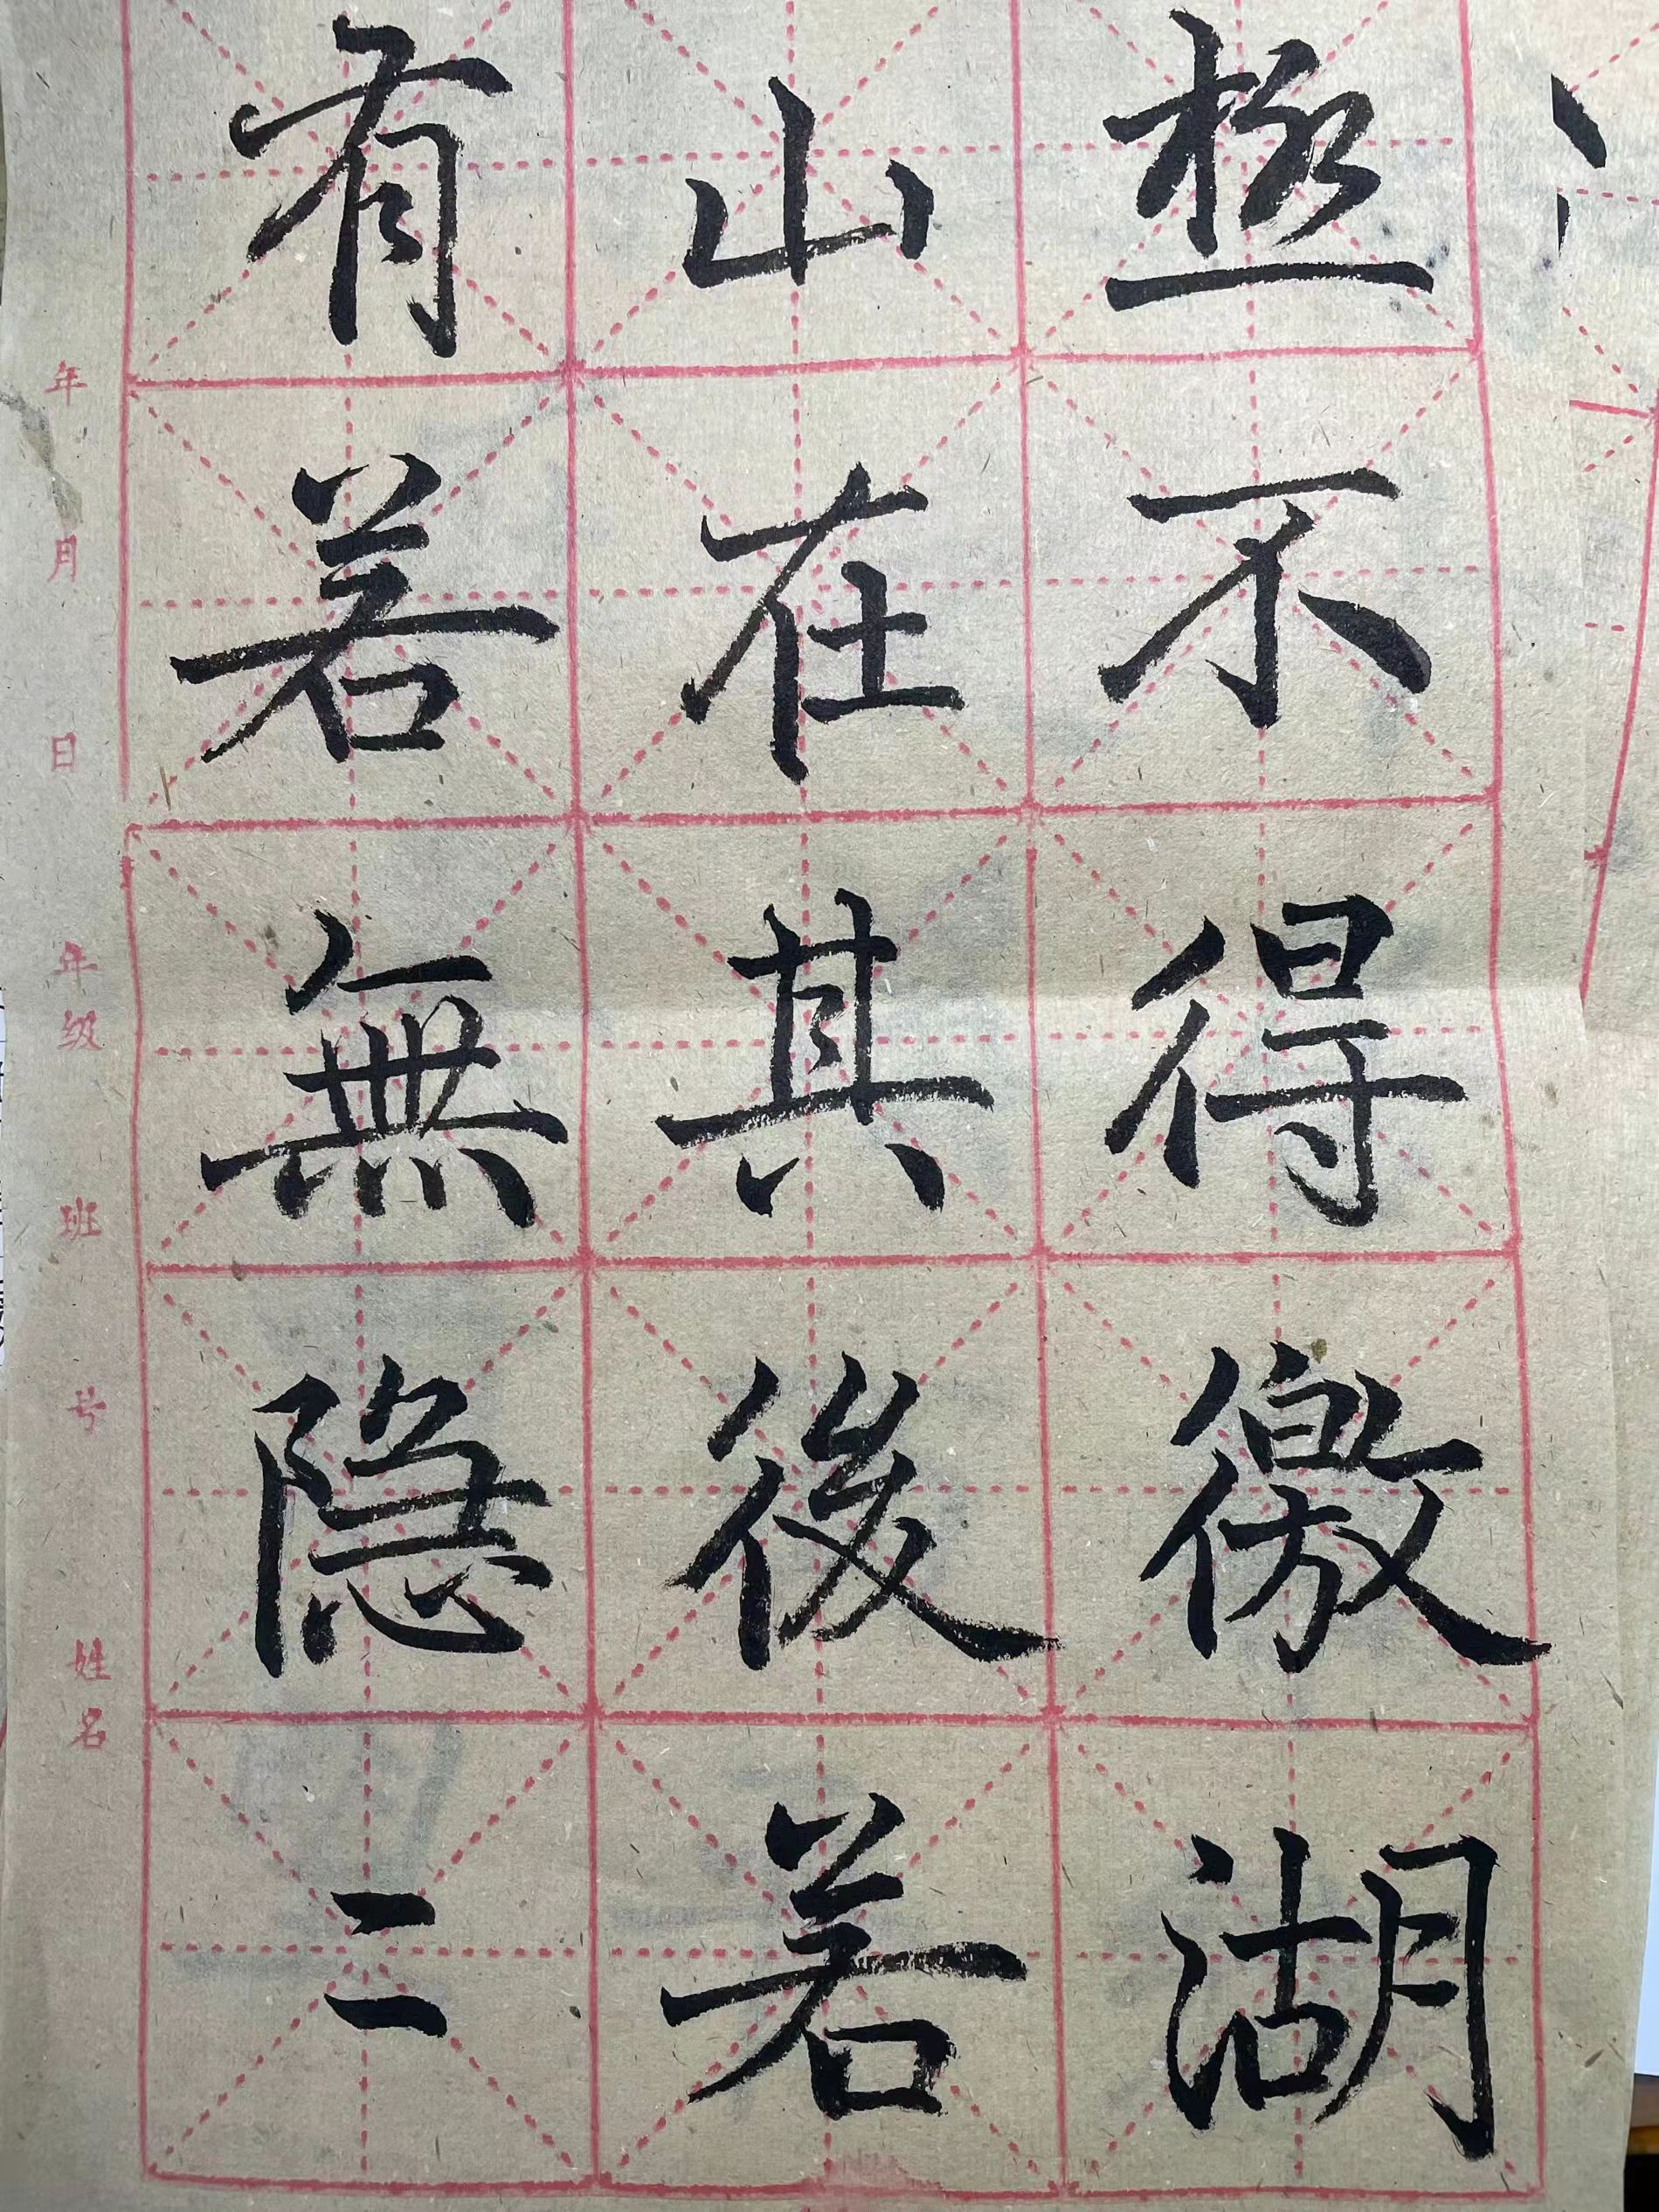 極不得徼湖
山在其後若
有若無隐二
年 月 日 年级 班 号 姓名